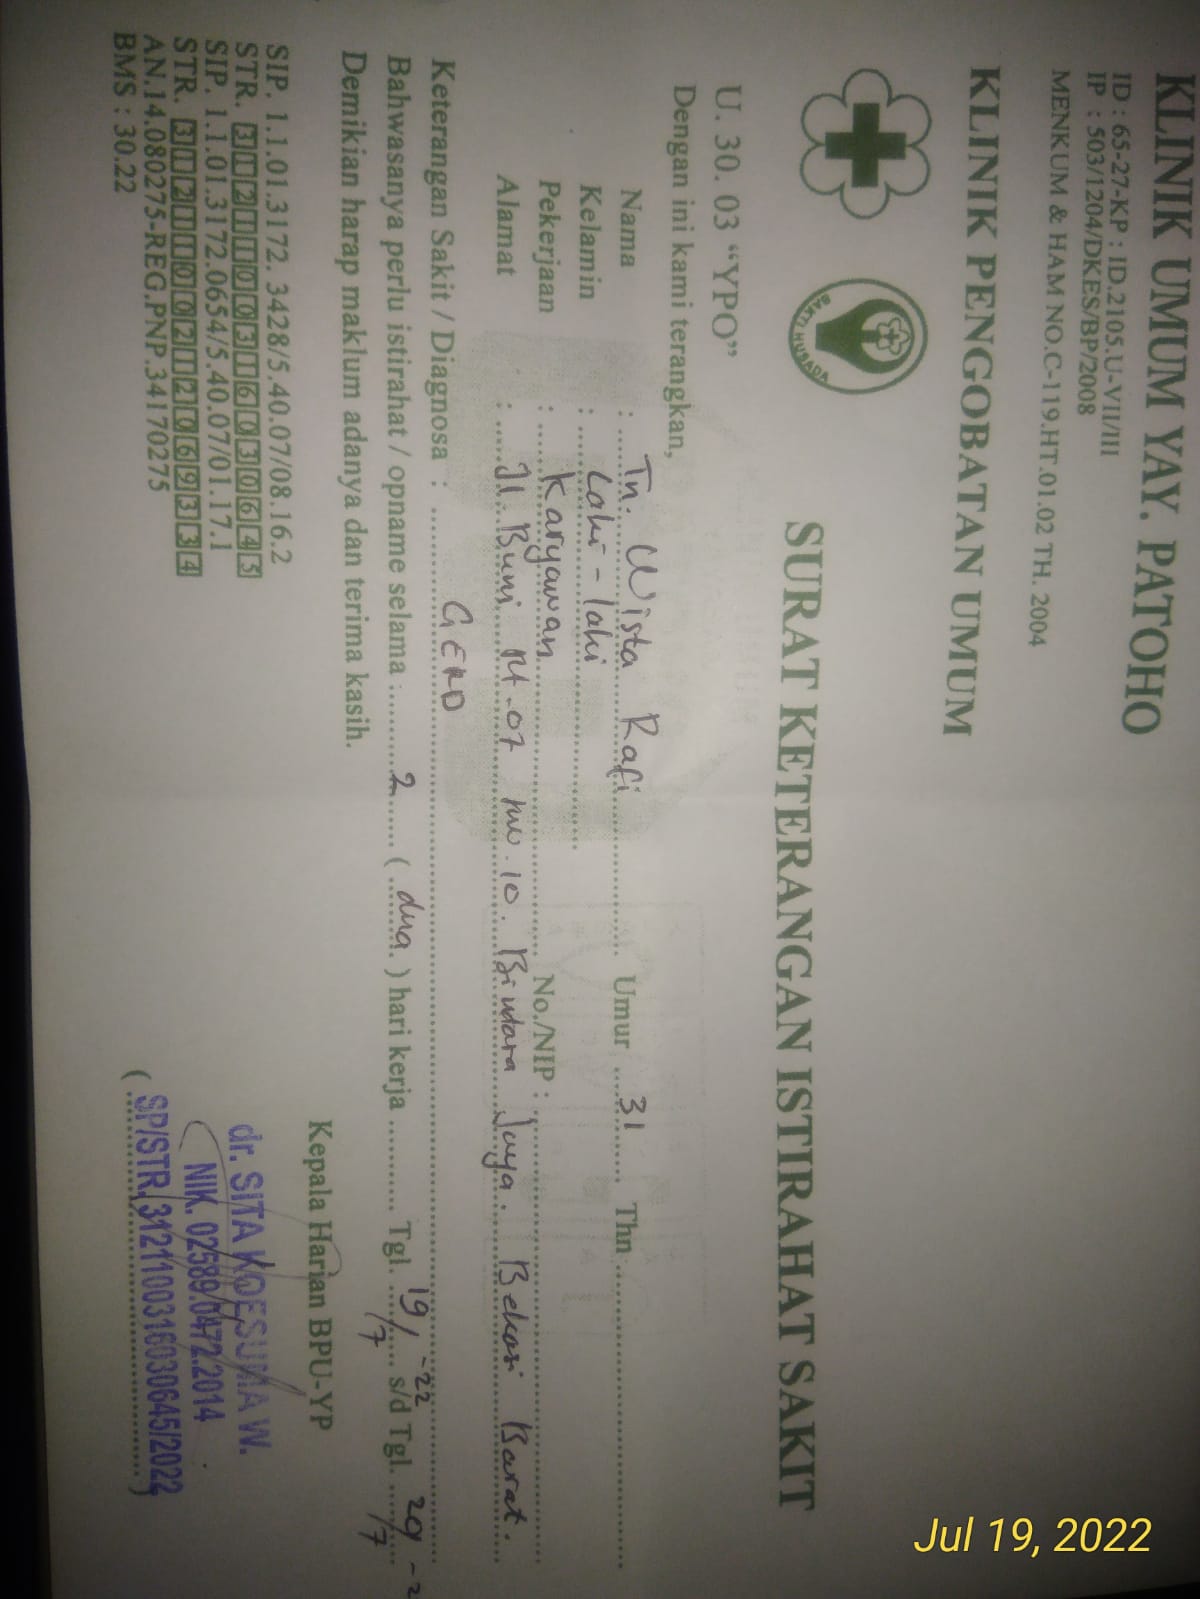 KLINIK UMUM YAY. PATOHO
ID : 65-27-KP : ID.2105.U-VII/III
IP : 503/1204/DKES/BP/2008
MENKUM & HAM NO.C-119.HT.01.02 TH. 2004
Jul 19, 2022
KLINIK PENGOBATAN UMUM
BAKTI HUSADA
SURAT KETERANGAN ISTIRAHAT SAKIT
U. 30. 03 “YPO”
Dengan ini kami terangkan,
Nama : Tn. Wista Rafi Umur 31 Thn
Kelamin : Laki - laki
Pekerjaan : Karyawan No./NIP :
Alamat : Jl. Buni Rt.07 rw.10. Bintara Jaya. Bekasi Barat.
Keterangan Sakit / Diagnosa : GERD
Bahwasanya perlu istirahat / opname selama : 2 ( dua ) hari kerja Tgl. 19/7 -22 s/d Tgl. 20/7 -2
Demikian harap maklum adanya dan terima kasih.
Kepala Harian BPU-YP
SIP. 1.1.01.3172. 3428/5.40.07/08.16.2
STR. 3121100316030645
SIP. 1.1.01.3172.0654/5.40.07/01.17.1
STR. 3121100212069334
AN.14.080275-REG.PNP.34170275
BMS : 30.22
dr. SITA KOESUMA W.
NIK. 02589.0472.2014
( SP/STR. 3121100316030645/2022 )